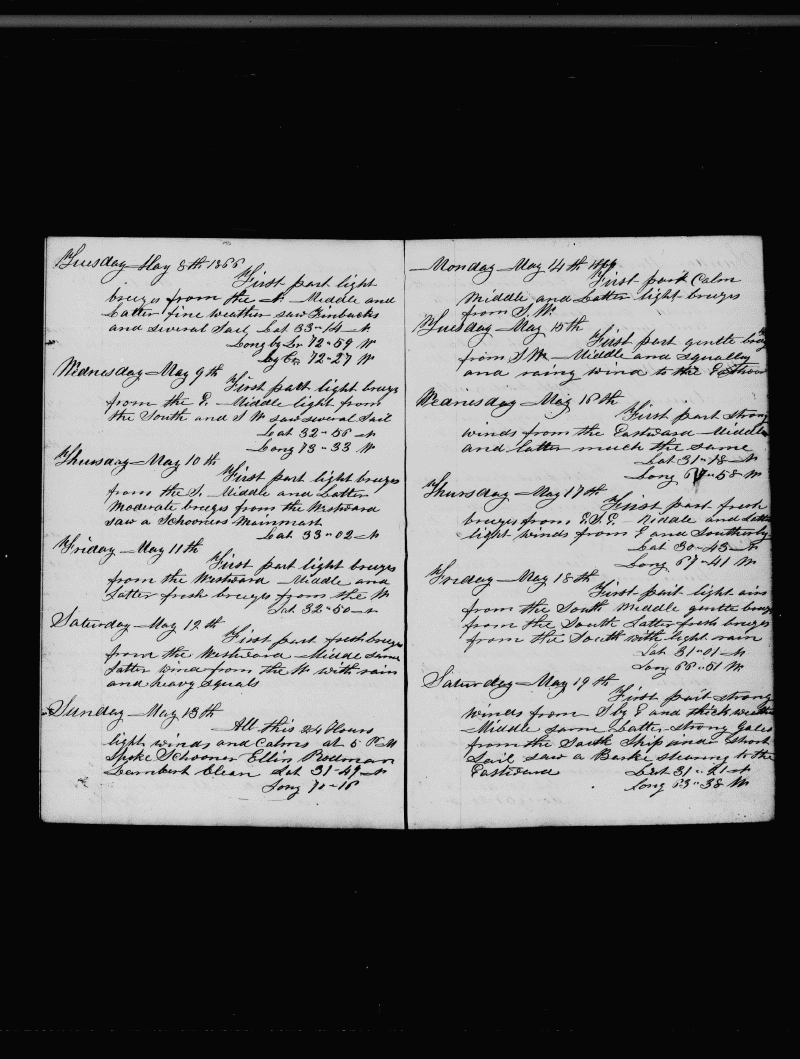 Tuesday May 8th 1866
First part light
breezes from the N. Middle and
Latter fine weather saw Finbacks
and several Sail Lat 33"14 N
Long by Lr 72"59 W
by Cr 72"27 W
Wednesday May 9th
First patt light breeze
from the E. Middle light from
the South and S W saw several Sail
Lat 32"56 N
Long 73"33 W
Thursday May 10th
First part light breezes
from the S. Middle and Latter
Moderate breezes from the Westward
saw a Schooners Mainmast
Lat 33"02 N
Friday May 11th
First part light breezes
from the Westward Middle and
Latter fresh breezes from the W
Lat 32"50 N
Saturday May 12th
First part fresh breezes
from the Westward Middle same
Latter wind from the W with rain
and heavy squals
Sunday May 13th
All this 24 Hours
light winds and Calms at 5 P M
Spoke Schooner Ellin Rodman
Lambert Clean Lat 31"49 N
Long 70"16
Monday May 14th 1866
First part Calm
Middle and Latter light breezes
from S. W.
Tuesday May 15th
First part gentle
from S W. Middle and squalley
and rainy wind to the Eastward
Wednesday May 16th
First part strong
winds from the Eastward Middle
and latter much the same
Lat 31"18 N
Long 67"58 W
Thursday May 17th
First part fresh
breezes from E.S.E. Middle and Latter
light winds from E and Southerly
Lat 30"43 N
Long 67"41 W
Friday May 18th
First part light airs
from the South Middle gentle breezes
from the South Latter fresh breezes
from the South with light rain
Lat 31"01 N
Long 66"51 W
Saturday May 19th
First part strong
winds from S by E and thick weather
Middle same Latter strong Gales
from the South Ship under Short
Sail saw a Barke stearing to the
Eastward Lat 31"21 N
Long 63"38 W